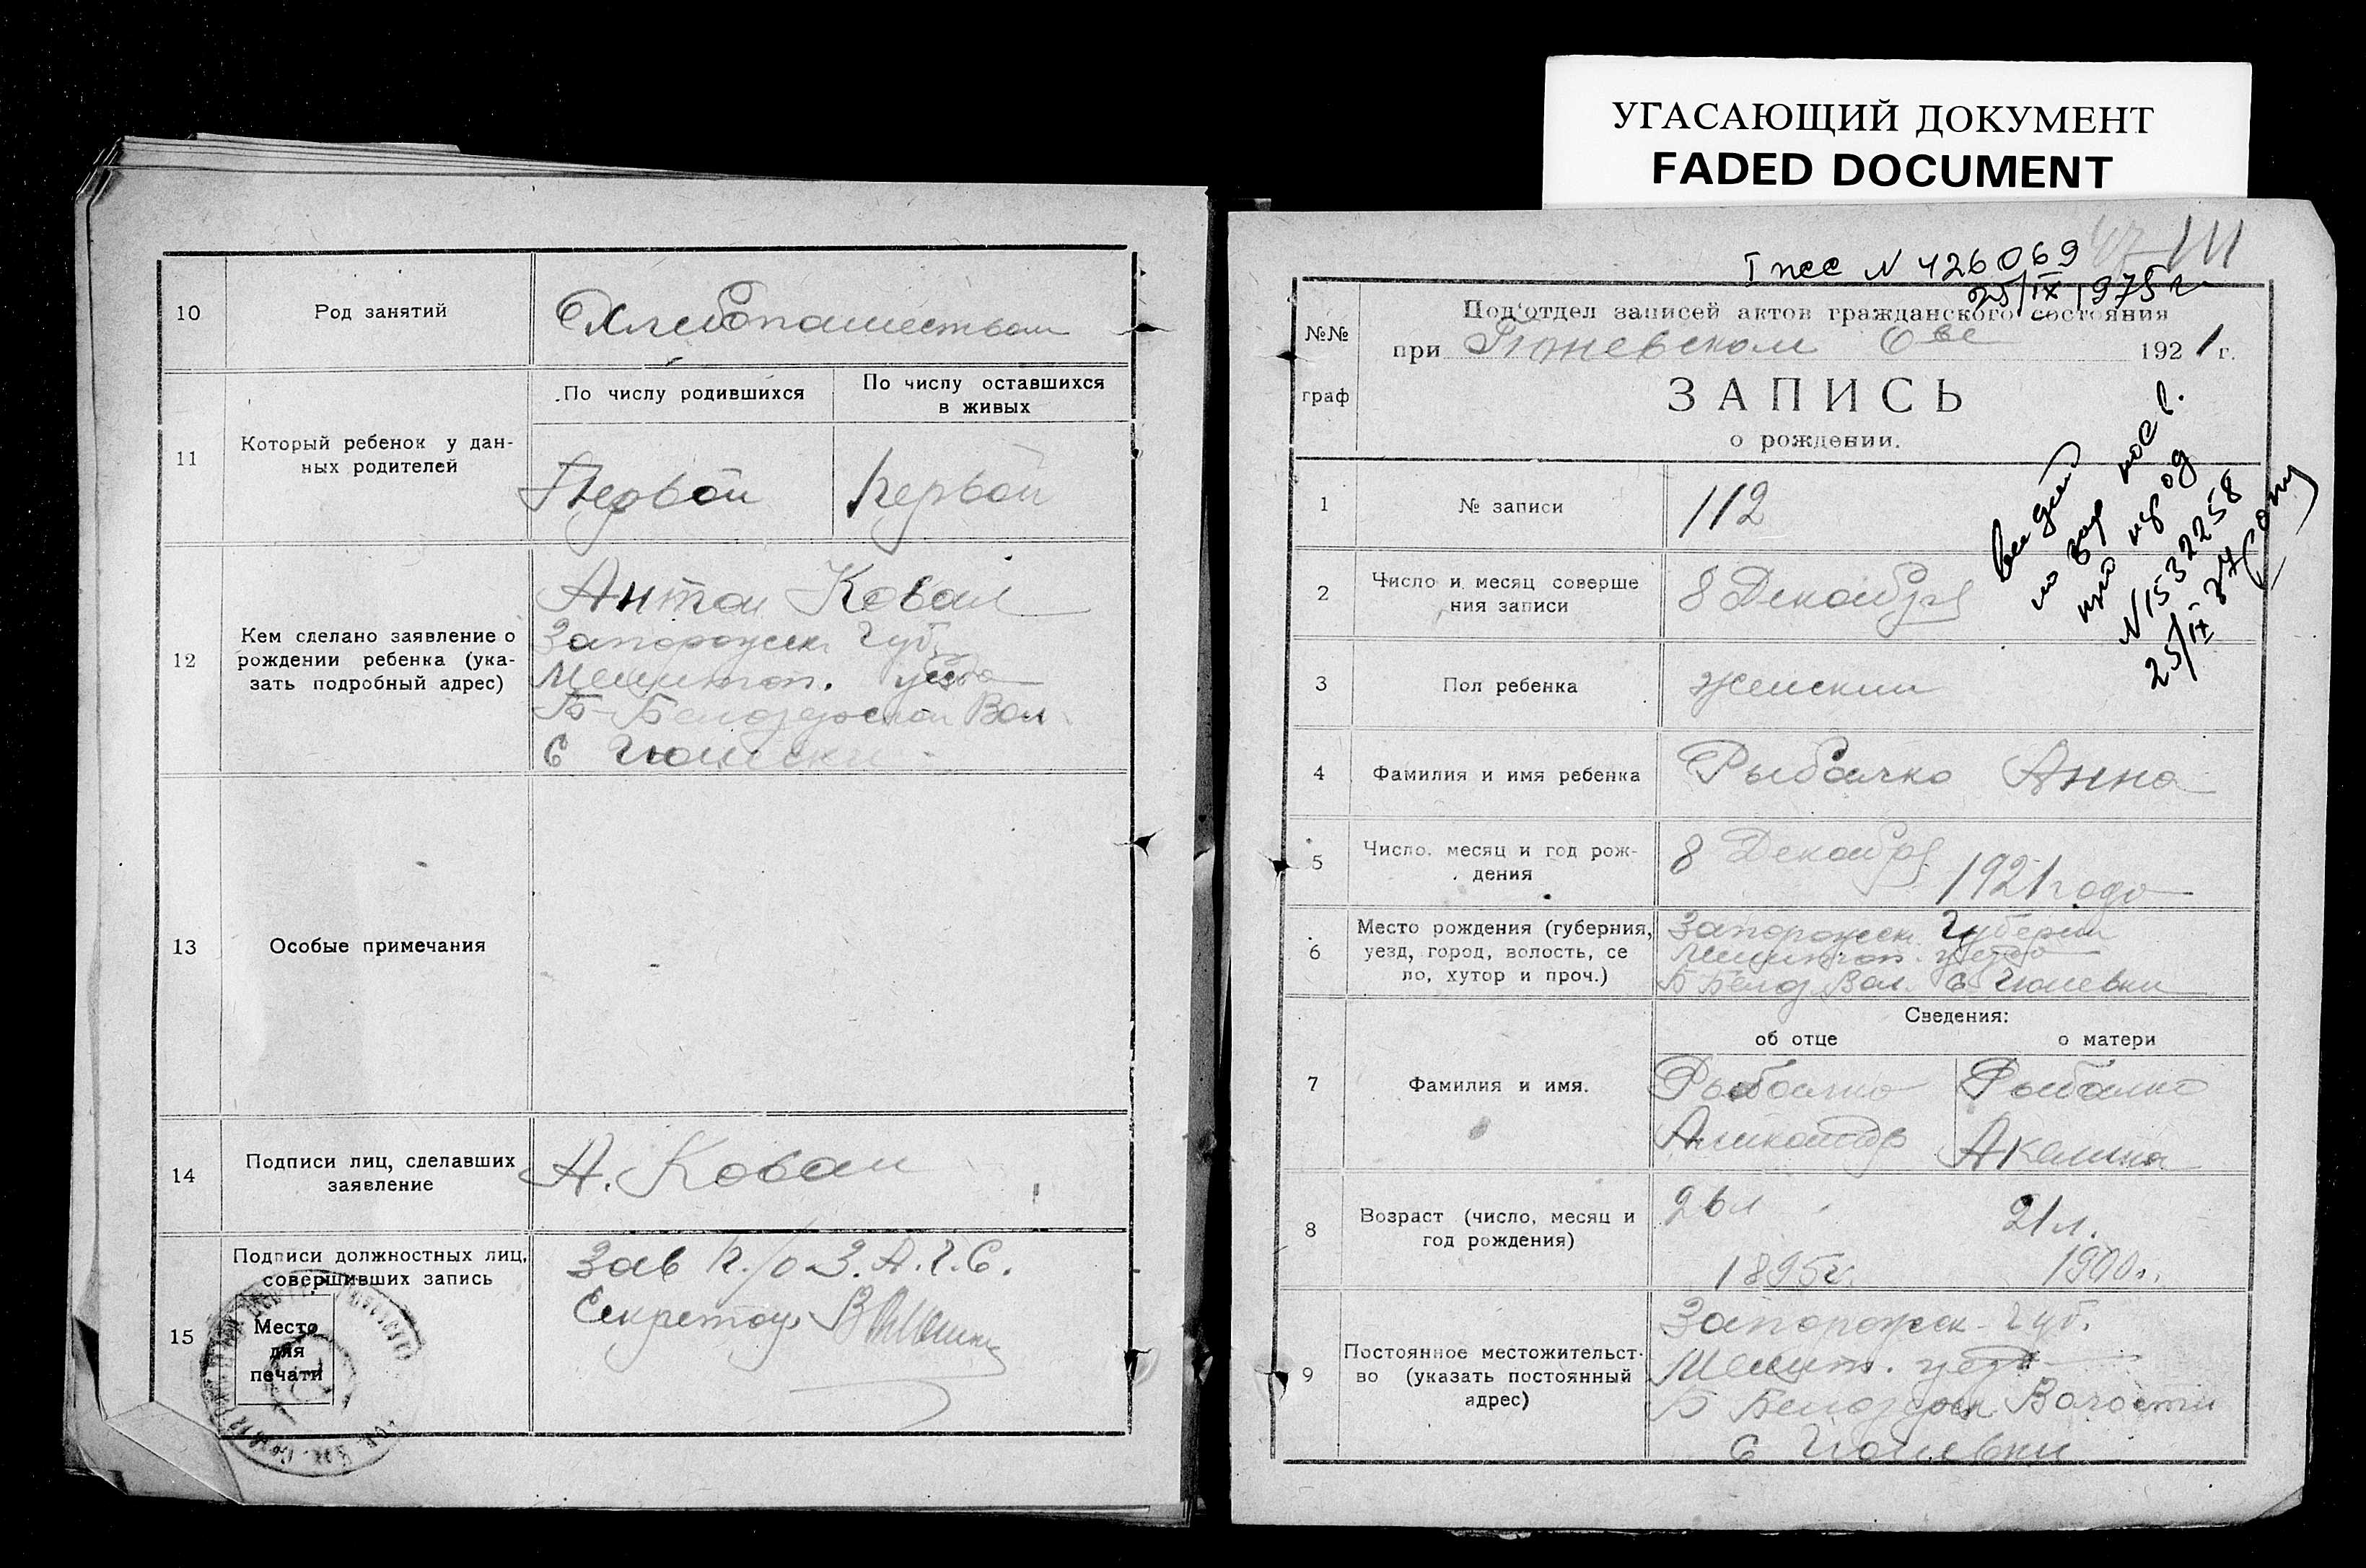 УГАСАЮЩИЙ ДОКУМЕНТ
FADED DOCUMENT
10
Род занятий
Хлебопашеством
11
Который ребенок у дан-
ных родителей
По числу родившихся
По числу оставшихся
в живых
Первой
Первой
12
Кем сделано заявление о
рождении ребенка (ука-
зать подробный адрес)
Антон Ковал
Запорожск Губ.
Мелитоп. уезда
Б-Белозерской Вол.
С
13
Особые примечания
14
Подписи лиц, сделавших
заявление
А. Ковал
15
Подписи должностных лиц,
совершивших запись
Место
для
печати
Зав П./о З.А.Г.С.
Секретарь
111
N 426069
25/IX 1975 г.
№№
граф
Под'отдел записей актов гражданского состояния
при
192 1 г.
ЗАПИСЬ
о рождении.
N 1532258
25/IX
1
№ записи
112
2
Число и месяц соверше
ния записи
8 Декабря
3
Пол ребенка
женский
4
Фамилия и имя ребенка
Рыбалко Анна
5
Число. месяц и год рож-
дения
8 Декабря
1921 года
6
Место рождения (губерния,
уезд, город, волость, се
ло, хутор и проч.)
Запорожск. Губернии
Мелитоп. уезда
Б Белоз. Вол. С
Сведения:
об отце
о матери
7
Фамилия и имя.
Рыбалко
Александр
Рыбалко
Акелина
8
Возраст (число, месяц и
год рождения)
26 л
1895 г.
21 л.
1900 г.
9
Постоянное местожительст-
во (указать постоянный
адрес)
Запорожск. Губ.
Мелит. уезд
Б Белозерск Волости
С